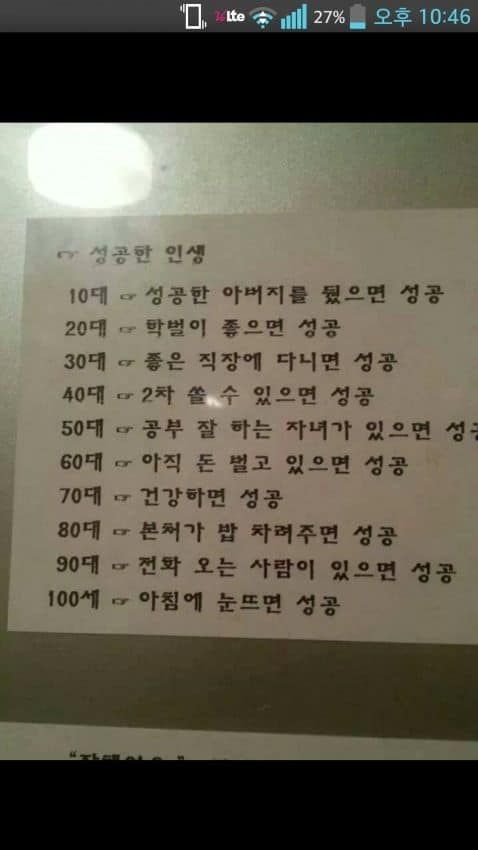 LTE 27% 오후 10:46
☞ 성공한 인생
10대 ☞ 성공한 아버지를 뒀으면 성공
20대 ☞ 학벌이 좋으면 성공
30대 ☞ 좋은 직장에 다니면 성공
40대 ☞ 2차 쏠 수 있으면 성공
50대 ☞ 공부 잘 하는 자녀가 있으면 성
60대 ☞ 아직 돈 벌고 있으면 성공
70대 ☞ 건강하면 성공
80대 ☞ 본처가 밥 차려주면 성공
90대 ☞ 전화 오는 사람이 있으면 성공
100세 ☞ 아침에 눈뜨면 성공